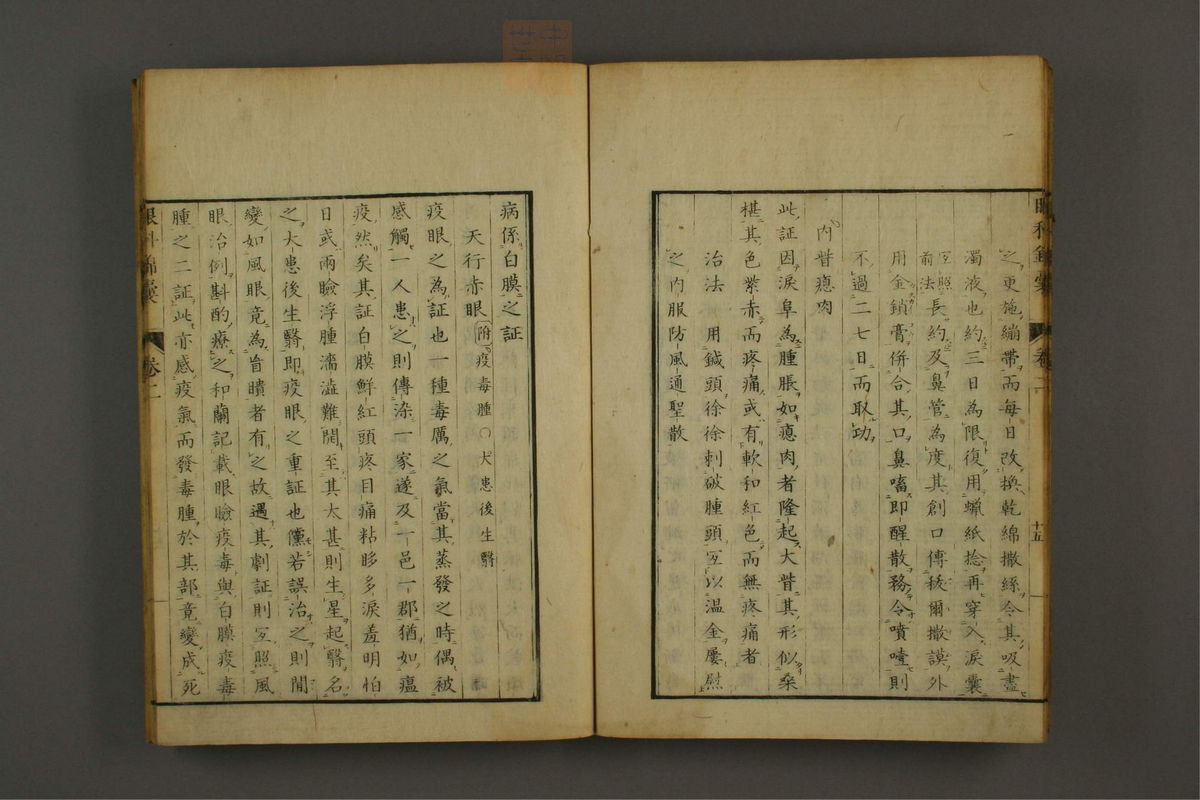 眼科錦囊 卷二 十五
之更施繃帶而每日改換乾綿撒絲令其吸盡
濁液也約三日為限復用蝋紙捻再穿入淚囊
宜照前法長約及鼻管為度其創口傳拔爾撒謨外
用金鎖膏併合其口鼻嗑即醒散務令噴嚏則
不過二七日而取功
內眥瘜肉
此証因淚阜為腫脹如瘜肉者隆起大眥其形似桑
椹其色紫赤而疼痛或有軟和紅色而無疼痛者
治法 用鍼頭徐徐刺破腫頭宜以温金屢慰
之內服防風通聖散
病係白膜之証
天行赤眼 附疫毒腫〇大患後生翳
疫眼之為証也一種毒厲之氣當其蒸發之時偶被
感觸一人患之則傳染一家遂及一邑一郡猶如瘟
疫然矣其証白膜鮮紅頭疼目痛粘眵多淚羞明怕
日或兩瞼浮腫濇澁難開至其大甚則生星起翳名
之大患後生翳即疫眼之重証也儻若誤治之則間
變如風眼竟為盲瞶者有之故遇其劇証則宜照風
眼治例斟酌療之和蘭記載眼瞼疫毒與白膜疫毒
腫之二証此亦感疫氣而發毒腫於其部竟變成死
眼科錦囊 卷二